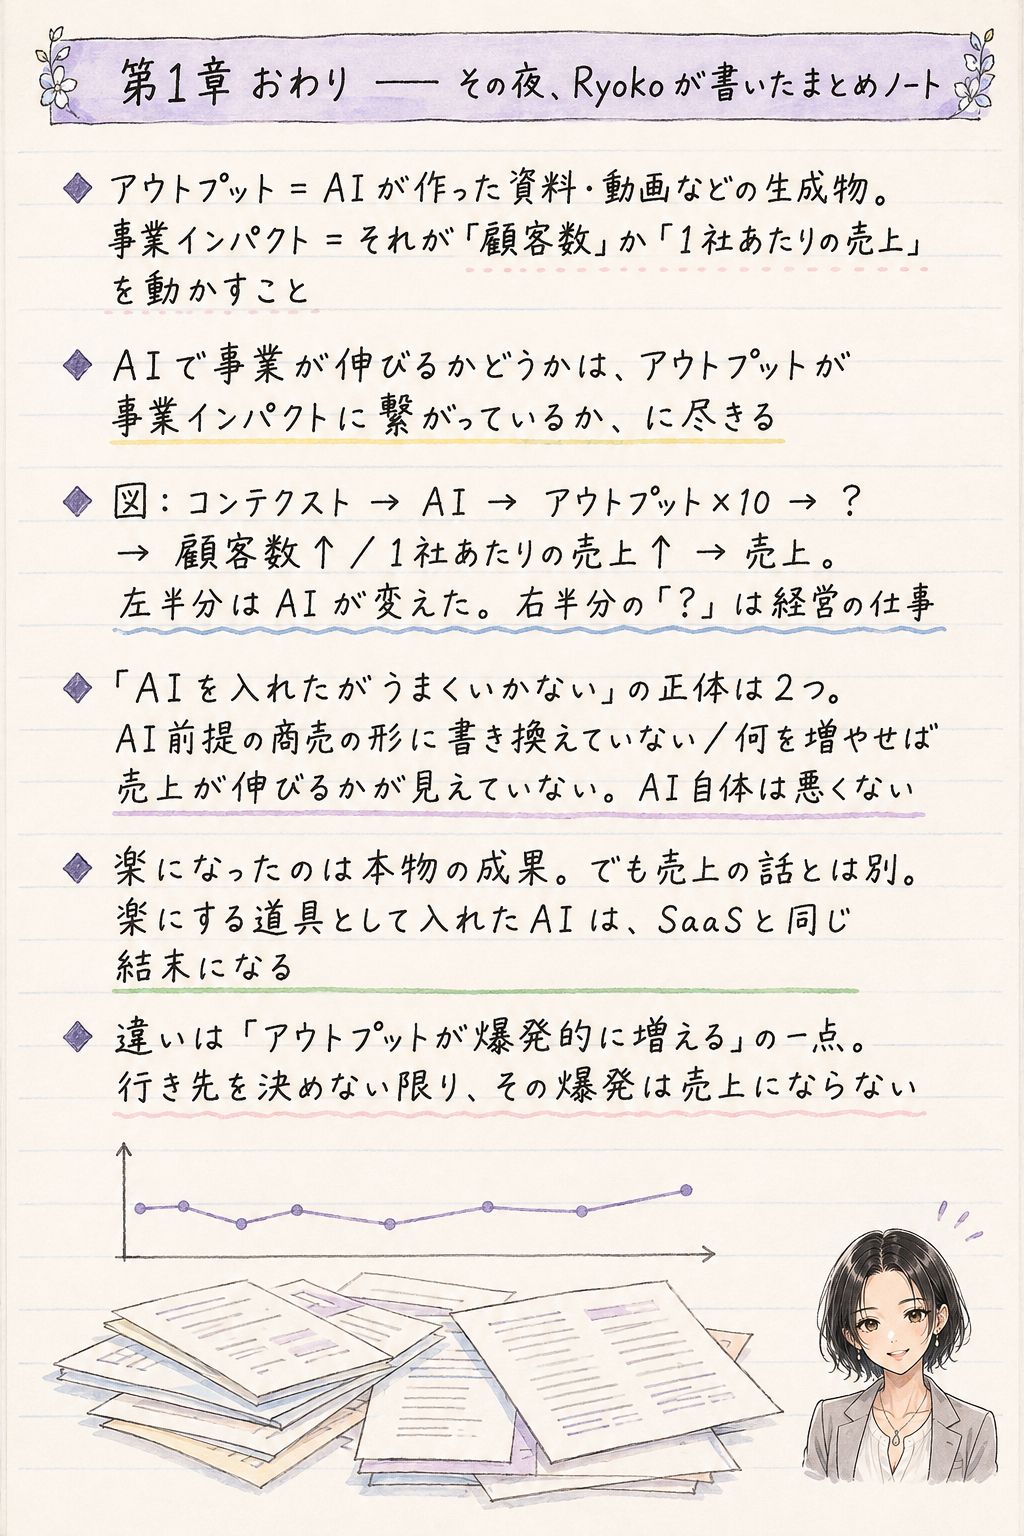 第1章 おわり ―― その夜、Ryokoが書いたまとめノート
アウトプット = AIが作った資料・動画などの生成物。
事業インパクト = それが「顧客数」か「1社あたりの売上」
を動かすこと
AIで事業が伸びるかどうかは、アウトプットが
事業インパクトに繋がっているか、に尽きる
図：コンテクスト → AI → アウトプット×10 → ？
→ 顧客数↑ / 1社あたりの売上↑ → 売上。
左半分はAIが変えた。右半分の「？」は経営の仕事
「AIを入れたがうまくいかない」の正体は2つ。
AI前提の商売の形に書き換えていない/何を増やせば
売上が伸びるかが見えていない。AI自体は悪くない
楽になったのは本物の成果。でも売上の話とは別。
楽にする道具として入れたAIは、SaaSと同じ
結末になる
違いは「アウトプットが爆発的に増える」の一点。
行き先を決めない限り、その爆発は売上にならない